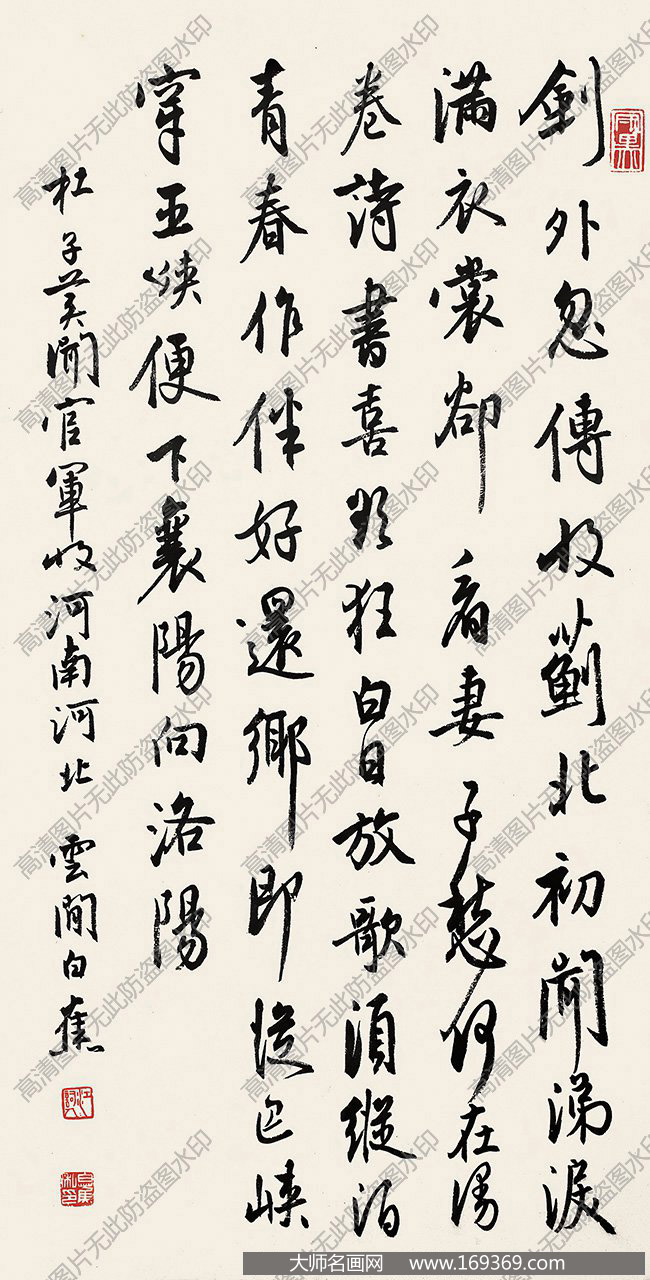 劍外忽傳收薊北初聞涕淚
滿衣裳卻看妻子愁何在漫
卷詩書喜欲狂白日放歌須縱酒
青春作伴好還鄉即從巴峽
穿巫峽便下襄陽向洛陽
杜子美聞官軍收河南河北 雲間白蕉
高清图片无此防盗图水印
大师名画网 www.169369.com